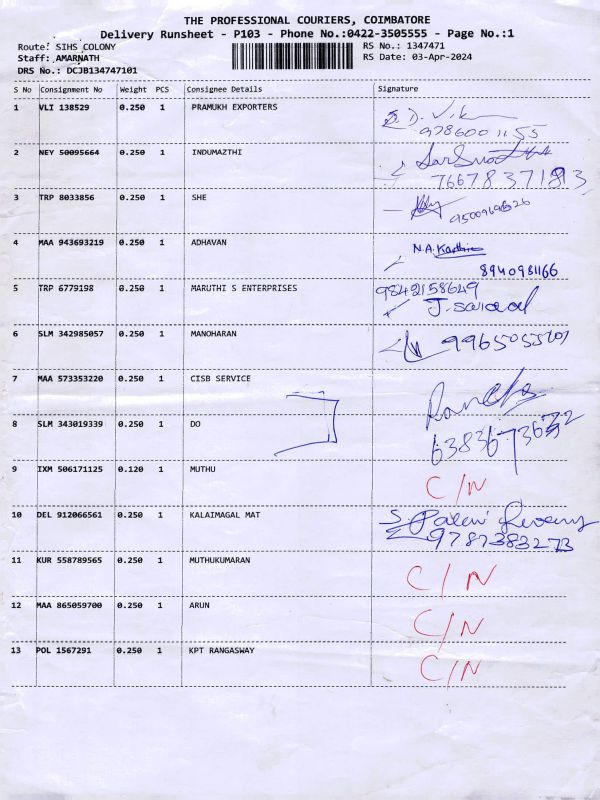 THE PROFESSIONAL COURIERS, COIMBATORE
Delivery Runsheet - P103 - Phone No.:0422-3505555 - Page No.:1
Route: SIHS COLONY
RS No.: 1347471
Staff: AMARNATH
RS Date: 03-Apr-2024
DRS No.: DCJB134747101
S No Consignment No Weight PCS Consignee Details Signature
1 VLI 138529 0.250 1 PRAMUKH EXPORTERS
9786001155
2 NEY 50095664 0.250 1 INDUMAZTHI
3 TRP 8033856 0.250 1 SHE
4 MAA 943693219 0.250 1 ADHAVAN N.A. Karthic
8940981166
5 TRP 6779198 0.250 1 MARUTHI S ENTERPRISES 9842158649
6 SLM 342985057 0.250 1 MANOHARAN
7 MAA 573353220 0.250 1 CISB SERVICE
8 SLM 343019339 0.250 1 DO
9 IXM 506171125 0.120 1 MUTHU C/N
10 DEL 912066561 0.250 1 KALAIMAGAL MAT
9787383273
11 KUR 558789565 0.250 1 MUTHUKUMARAN C/N
12 MAA 865059700 0.250 1 ARUN C/N
13 POL 1567291 0.250 1 KPT RANGASWAY C/N